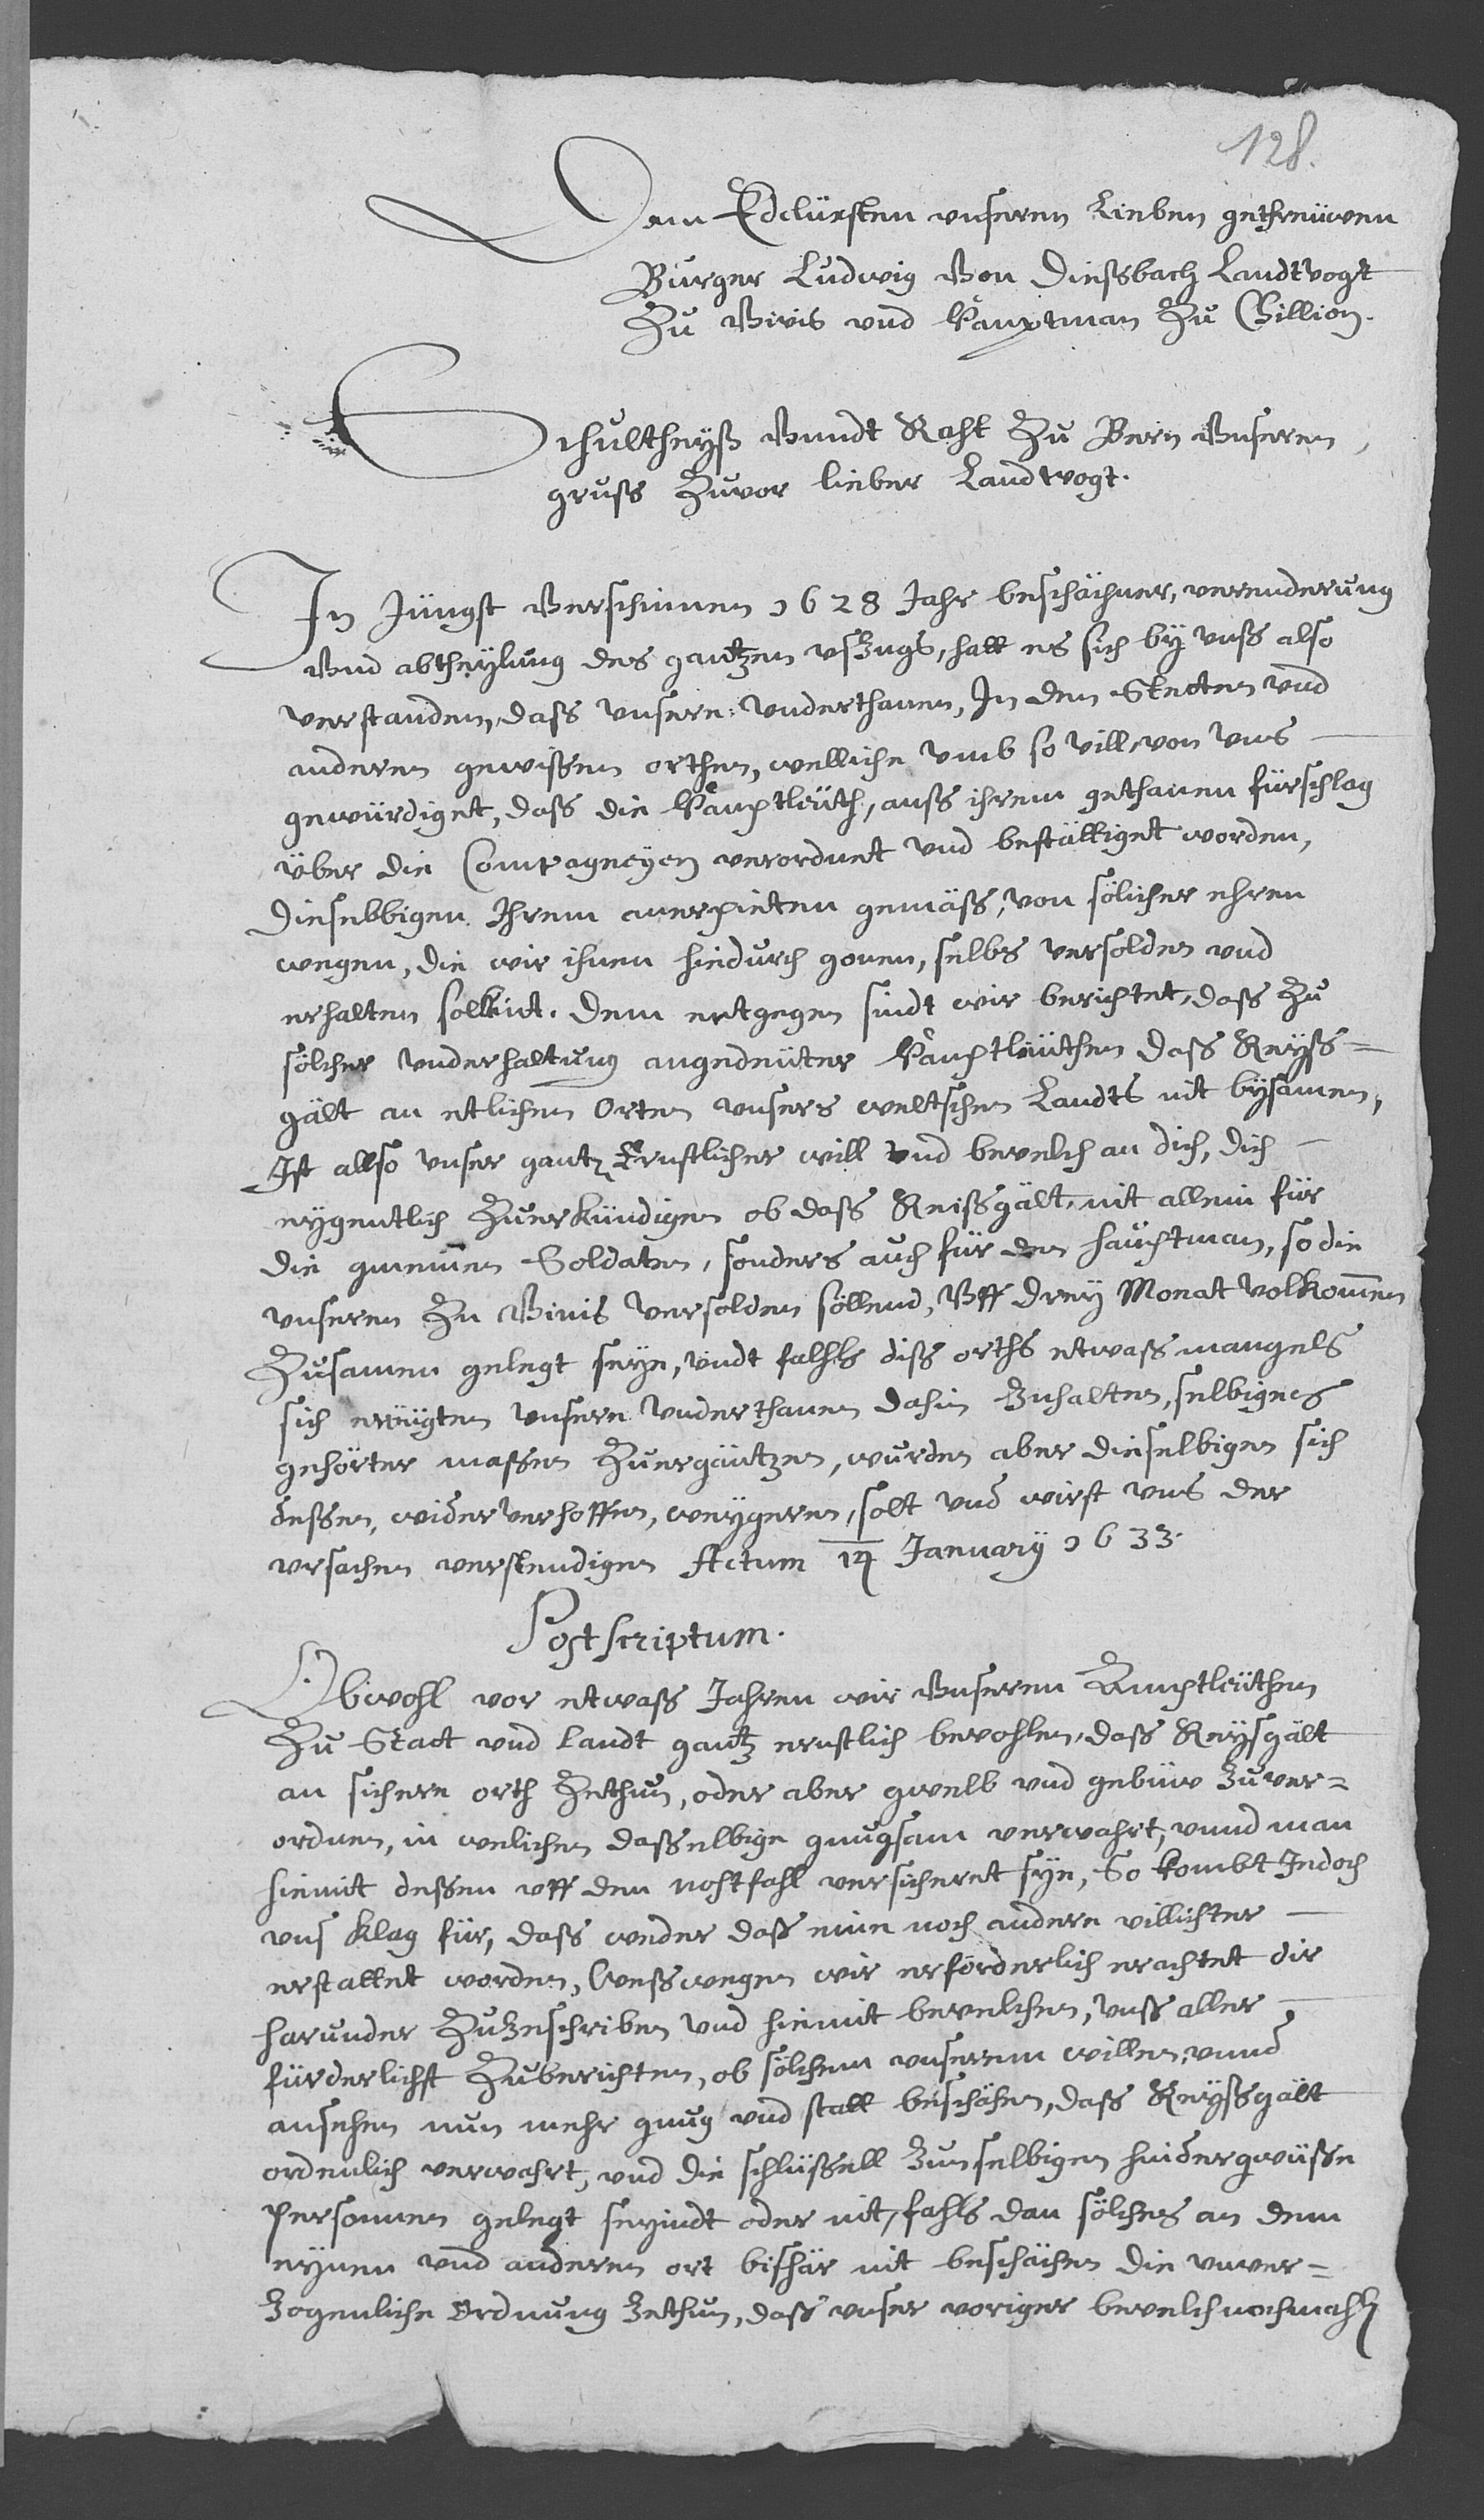 128.
Dem Edelüesten vnseren Lieben gethreüwen
Burger Ludwig Von Diessbach Landtvogt
Zu Vivis vnd Hauptman Zu Chillion.
Schultheyß Vnndt Raht Zu Bern Vnseren
gruss Zuvor lieber Landtvogt.
In Jüngst Verschinnen 1628 Jahr beschächner, verenderung
Vnd abtheylung des gantzen vßZugs, hatt es sich by vnß also
verstanden, dass vnsere Vnderthanen, In den Stetten vnd
anderen gewissen orthen, welliche vmb so vill von vns
gewürdiget, dass die Hauptleüth, auss ihrem gethanen fürschlag
über die Compagneyen verordnet vnd bestättiget worden,
Dieselbbigen Ihrem anerpieten gemäss, von sölicher ehren
wegen, die wir ihnen hiedurch gonen, selbs versolden vnd
erhalten sollint. Dem entgegen sindt wir berichtet, dass Zu
sölcher vnderhaltung angedeüter Hauptleüthen dass Reyss=
gält an etlichen Orten vnsers weltschen Landts nit bysamen,
Ist allso vnser gantz Ernstlicher will vnd bevelch an dich, dich
eygentlich Zuerkündigen ob dass Reissgält, nit allein für
die gmeinen Soldaten, sonders auch für den hauptman, so die
vnseren Zu Vivis versolden söllend, Vff drey Monat volkommen
Zusamen gelegt seye, vndt fahls diss orths etwass mangels
sich erzeigten vnsere vnderthanen dahin Zuhalten, selbiges
gehörter massen Zuergäntzen, wurden aber dieselbigen sich
dessen, wider verhoffen, weygeren, solt vnd wirst vns der
vrsachen verstendigen Actum 14 January 1633.
Postscriptum.
Obwohl vor etwass Jahren wir Vnseren Amptleüthen
Zu Statt vnd Landt gantz ernstlich bevohlen, dass Reyssgält
an sichere orth Zethun, oder aber gwelb vnd gebüw Zuver=
ordnen, in welichen dasselbige gnugsam verwahrt, vnnd man
hiemit dessen vff den nohtfahl versicheret sye, So kombt Jedoch
vns klag für, dass weder dass eine noch andere villichter
erstattet worden, Wesswegen wir erforderlich erachtet dir
harunder ZuZeschriben vnd hiemit bevelchen, vnss aller
fürderlichst Zuberichten, ob sölchem vnserem willen vnnd
ansehen nun mehr gnug vnd statt beschähen, dass Reyssgält
ordenlich verwahrt, vnd die schlüssell Zum selbigen hinder gwüsse
Personnen gelegt seyindt oder nit, fahls dan sölches an dem
eynen vnd anderen ort bishär nit beschächen die vnver=
Zogenliche Ordnung Zethun, dass vnser voriger bevelch nochmahls